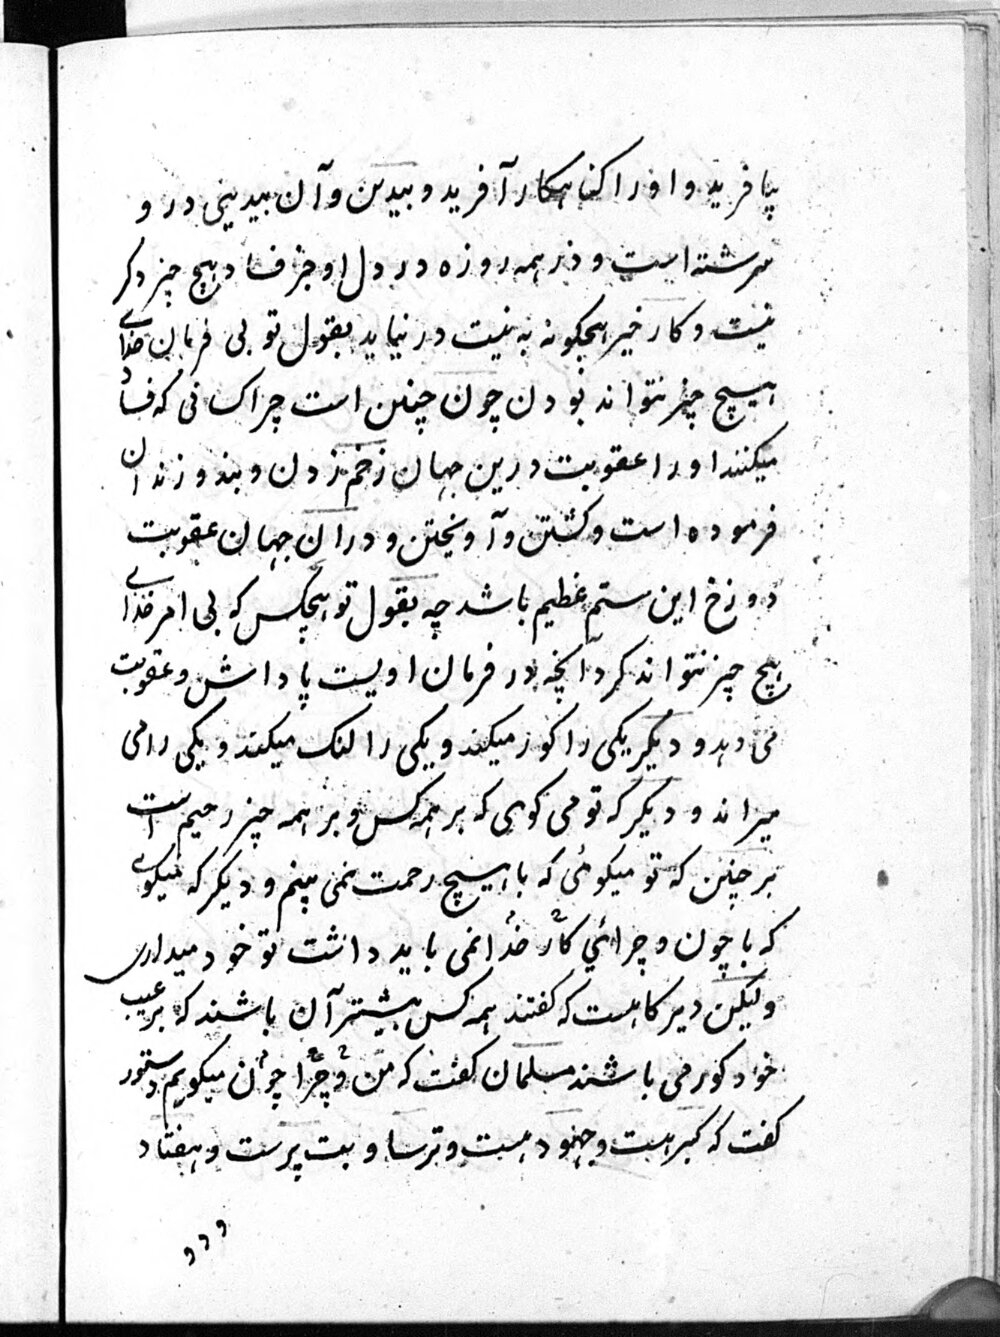 بیافرید و او را کناهکار آفرید و بیدین و آن بیدینی در و
سرشته است و در همه روزه در دل او جز فساد هیچ چیز دکر
نیست و کار خیر هیچکونه به نیت در نیاید بقول تو بی فرمان خدای
هیچ چیز نتواند بودن چون چنین است چرا کسانی که فساد
میکنند او را عقوبت درین جهان زخم زدن و بند و زندان
فرموده است و کشتن و آویختن و در ان جهان عقوبت
دوزخ این ستم عظیم باشد چه بقول تو هیچکس که بی امر خدای
هیچ چیز نتواند کرد آنچه در فرمان اویست پاداش و عقوبت
می دهد و دیکر یکی را کور میکند و یکی را لنک میکند و یکی را می
میراند و دیکر که تو می کوی که بر همه کس و بر همه چیز رحیم است
بر چنین که تو میکوئی که با هیچ رحمت نمی بینم و دیکر که میکوی
که با چون و چرائی کار خدا نمی باید داشت تو خود میداری
ولیکن دیر کاهست که کفتند همه کس بیشتر آن باشند که بر عیب
خود کور می باشند مسلمان کفت که من و چرا چون میکویم دستور
کفت که کبر هست و جهود هست و ترسا و بت پرست و هفتاد
و دو